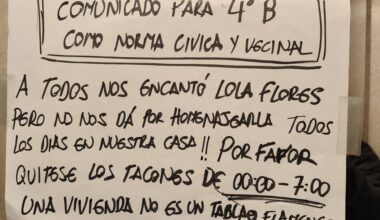 COMUNICADO PARA 4º B
COMO NORMA CIVICA Y VECINAL
A TODOS NOS ENCANTÓ LOLA FLORES
PERO NO NOS DÁ POR HOMENAJEARLA TODOS
LOS DIAS EN NUESTRA CASA!! POR FAVOR
QUITESE LOS TACONES DE 00:00 - 7:00
UNA VIVIENDA NO ES UN TABLAO FLAMENCO